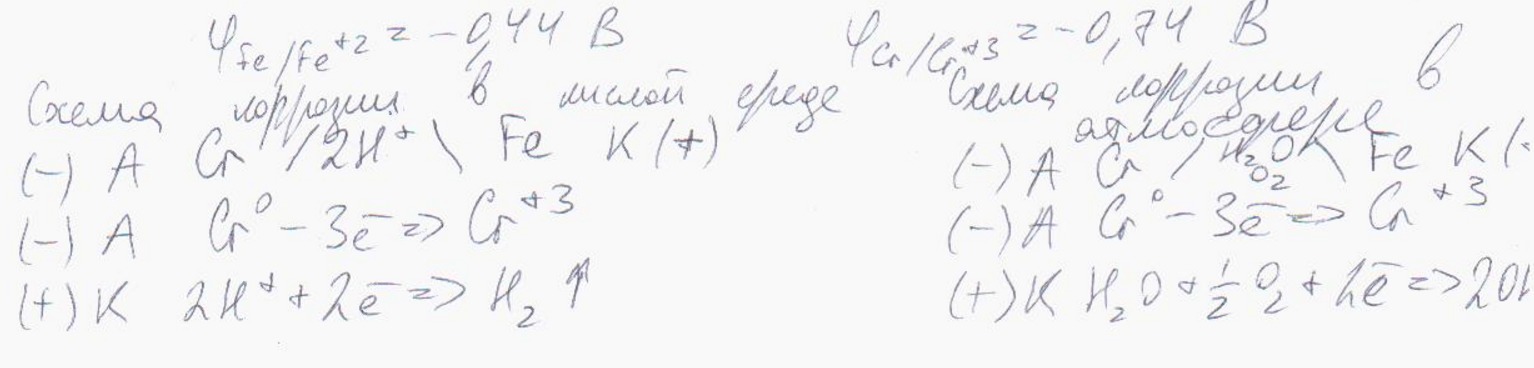 φ Fe/Fe⁺² = -0,44 В
φ Cr/Cr⁺³ = -0,74 В
Схема коррозии в кислой среде
(-) A Cr / 2H⁺ \ Fe K (+)
(-) A Cr⁰ - 3e̅ => Cr⁺³
(+) K 2H⁺ + 2e̅ => H₂ ↑
Схема коррозии в
атмосфере
(-) A Cr / H₂O O₂ \ Fe K (-
(-) A Cr⁰ - 3e̅ => Cr⁺³
(+) K H₂O + ½ O₂ + 2e̅ => 2OH